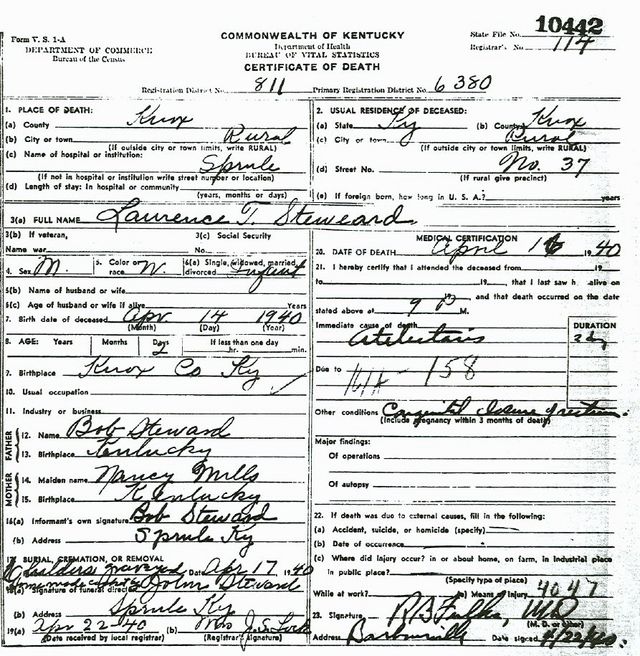 Form V. S. 1-A
DEPARTMENT OF COMMERCE
Bureau of the Census
COMMONWEALTH OF KENTUCKY
Department of Health
BUREAU OF VITAL STATISTICS
CERTIFICATE OF DEATH
State File No. 10442
Registrar's No. 114
Registration District No. 811 Primary Registration District No. 6380
1. PLACE OF DEATH:
(a) County Knox
(b) City or town Rural
(If outside city or town limits, write RURAL)
(c) Name of hospital or institution:
Sprule
(If not in hospital or institution write street number or location)
(d) Length of stay: In hospital or community
(years, months or days)
2. USUAL RESIDENCE OF DECEASED:
(a) State Ky (b) County Knox
(c) City or town Rural
(If outside city or town limits, write RURAL)
(d) Street No. No. 37
(If rural give precinct)
(e) If foreign born, how long in U. S. A.? years
3(a) FULL NAME Laurence T. Steweard
3(b) If veteran,
Name war
3(c) Social Security
No.
4. Sex M. 5. Color or race W. 6(a) Single, widowed, married, divorced Infant
6(b) Name of husband or wife
6(c) Age of husband or wife if alive Years
7. Birth date of deceased Apr 14 1940
(Month) (Day) (Year)
8. AGE: Years Months Days If less than one day
2 hr. min.
9. Birthplace Knox Co Ky
10. Usual occupation
11. Industry or business
FATHER
12. Name Bob Steward
13. Birthplace Kentucky
MOTHER
14. Maiden name Nancy Mills
15. Birthplace Kentucky
16(a) Informant's own signature Bob Steward
(b) Address Sprule Ky
17. BURIAL, CREMATION, OR REMOVAL
graveyard Date Apr 17 1940
18(a) Signature of funeral director John Steward
(b) Address Sprule Ky
19(a) Apr 22-40 (b) Mrs J. S. Lock
(Date received by local registrar) (Registrar's signature)
MEDICAL CERTIFICATION
20. DATE OF DEATH April 16 1940
21. I hereby certify that I attended the deceased from 19
to 19, that I last saw h alive on
19, and that death occurred on the date
stated above at 9 P M.
Immediate cause of death DURATION
Atelectasis 2 day
Due to 161A - 158
Other conditions Congenital closure of rectum.
(Include pregnancy within 3 months of death)
Major findings:
Of operations
Of autopsy
22. If death was due to external causes, fill in the following:
(a) Accident, suicide, or homicide (specify)
(b) Date of occurrence
(c) Where did injury occur? in or about home, on farm, in industrial place
in public place?
(Specify type of place)
While at work? (e) Means of injury 4047
23. Signature R B Fulks, MD
(M. D. or other)
Address Barbourville Date signed 4/22/40